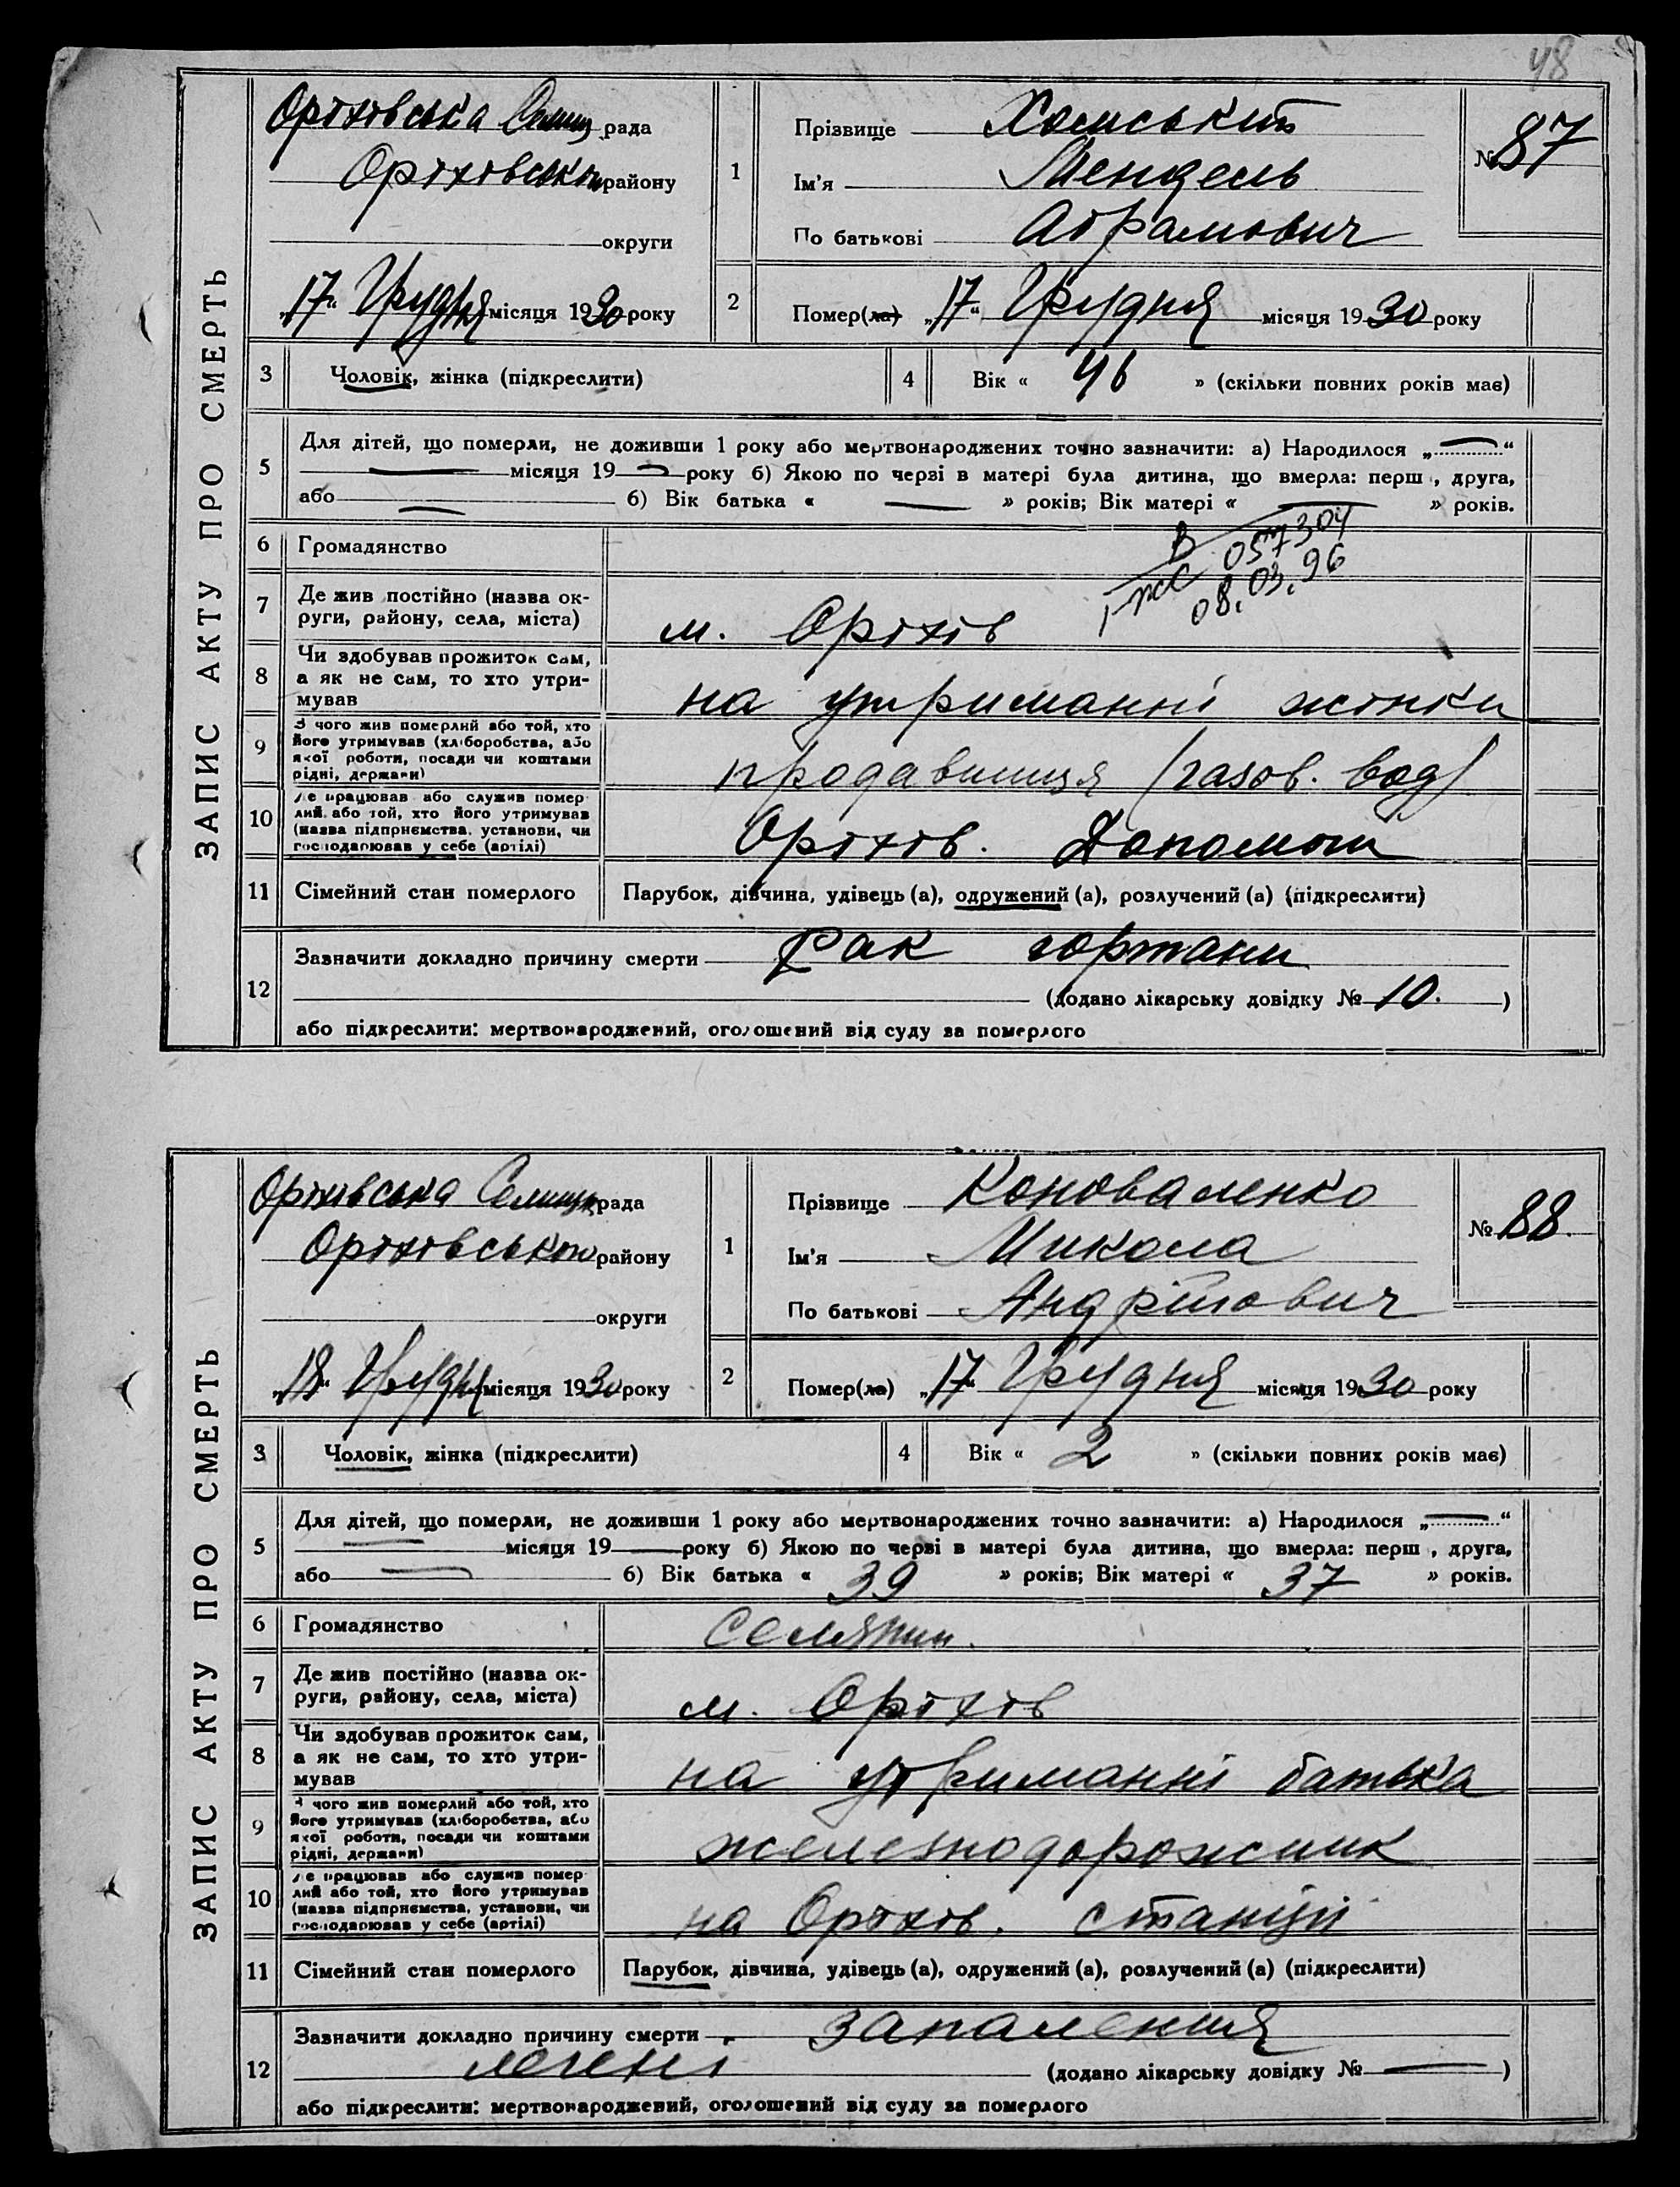 48
ЗАПИС АКТУ ПРО СМЕРТЬ
Оріхівська Селищ рада
Оріхівського району
округи
„17“ Грудня місяця 1930 року
1
Прізвище Хомський
Ім'я Мендель
По батькові Абрамович
№ 87
2
Помер(ла) „17“ Грудня місяця 1930 року
3 Чоловік, жінка (підкреслити)
4 Вік « 46 » (скільки повних років має)
5
Для дітей, що померли, не доживши 1 року або мертвонароджених точно зазначити: а) Народилося „—“
— місяця 19 — року б) Якою по черзі в матері була дитина, що вмерла: перш , друга,
або — б) Вік батька « — » років; Вік матері « — » років.
6 Громадянство
В 057304
І-ЖС 08.03.96
7 Де жив постійно (назва ок-
руги, району, села, міста)
м. Оріхів
8 Чи здобував прожиток сам,
а як не сам, то хто утри-
мував
на утриманні жінки
9 З чого жив померлий або той, хто
його утримував (хліборобства, або
якої роботи, посади чи коштами
рідні, держави)
продавщиця /газов. вод/
10 Де працював або служив помер-
лий або той, хто його утримував
(назва підприємства, установи, чи
господарював у себе (артілі)
Оріхів. Допомоги
11 Сімейний стан померлого
Парубок, дівчина, удівець (а), одружений (а), розлучений (а) (підкреслити)
12
Зазначити докладно причину смерти Рак гортани
(додано лікарську довідку № 10. )
або підкреслити: мертвонароджений, оголошений від суду за померлого
ЗАПИС АКТУ ПРО СМЕРТЬ
Оріхівська Селищн рада
Оріхівського району
округи
„18“ Грудня місяця 1930 року
1
Прізвище Коноваленко
Ім'я Микола
По батькові Андрійович
№ 88.
2
Помер(ла) „17“ Грудня місяця 1930 року
3 Чоловік, жінка (підкреслити)
4 Вік « 2 » (скільки повних років має)
5
Для дітей, що померли, не доживши 1 року або мертвонароджених точно зазначити: а) Народилося „—“
— місяця 19 — року б) Якою по черзі в матері була дитина, що вмерла: перш , друга,
або — б) Вік батька « 39 » років; Вік матері « 37 » років.
6 Громадянство
селянин.
7 Де жив постійно (назва ок-
руги, району, села, міста)
м. Оріхів
8 Чи здобував прожиток сам,
а як не сам, то хто утри-
мував
на утриманні батька
9 З чого жив померлий або той, хто
його утримував (хліборобства, або
якої роботи, посади чи коштами
рідні, держави)
железнодорожник
10 Де працював або служив помер-
лий або той, хто його утримував
(назва підприємства, установи, чи
господарював у себе (артілі)
на Оріхів. станціи
11 Сімейний стан померлого
Парубок, дівчина, удівець (а), одружений (а), розлучений (а) (підкреслити)
12
Зазначити докладно причину смерти запалення
легені
(додано лікарську довідку № — )
або підкреслити: мертвонароджений, оголошений від суду за померлого